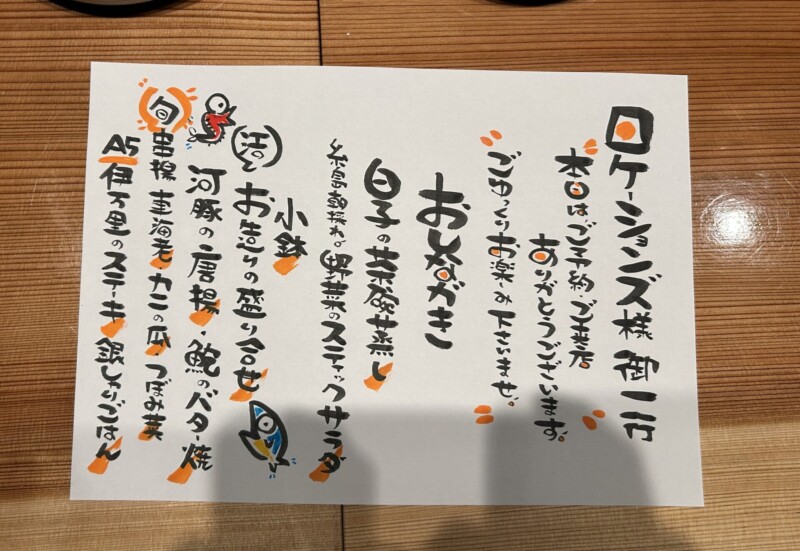 ロケーションズ様 御一行
本日はご予約・ご来店
ありがとうございます。
ごゆっくりお楽しみ下さいませ。
おしながき
白子の茶碗蒸し
糸島朝採れ。野菜のスティックサラダ
小鉢
活 お造りの盛り合せ
河豚の唐揚 鮑のバター焼
旬 串揚 車海老・カニの爪・つぼみ菜
A5伊万里のステーキ 銀しゃりごはん